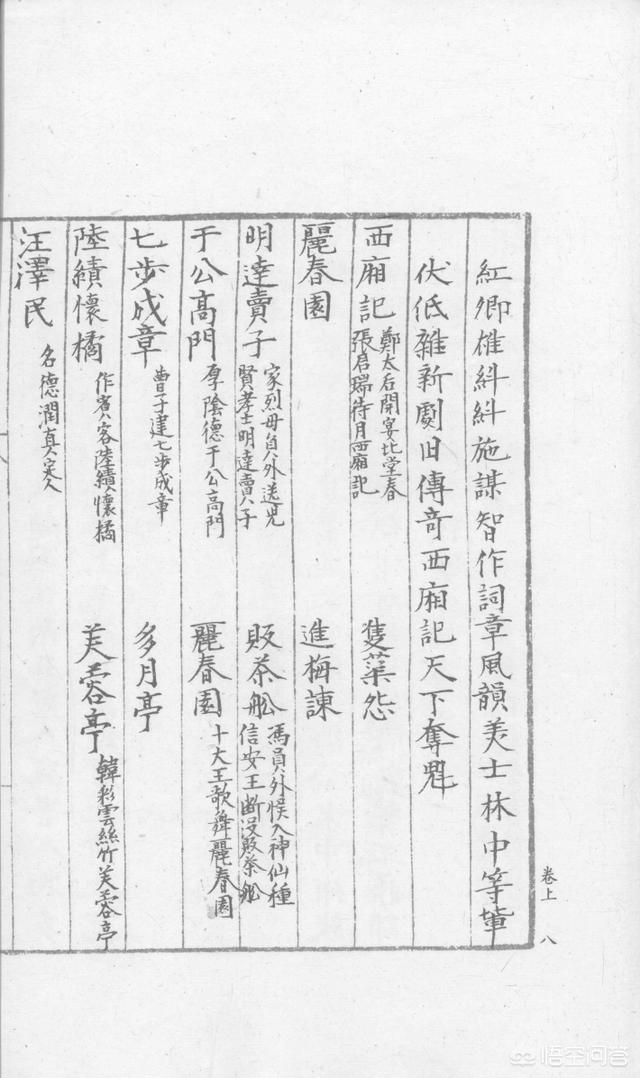 紅卿雄糾糾施謀智作詞章風韻美士林中等輩
伏低雜新劇旧傳奇西廂記天下奪魁
西廂記 鄭太后開宴北堂春
張君瑞待月西廂記
隻葉怨
麗春園
進梅諫
明達賣子 家烈母員外送兒
賢孝士明達賣子
販茶船 馮員外悞入神仙種
信安王断没販茶船
于公高門 厚陰德于公高門
麗春園 十大王歌舞麗春園
七步成章 曹子建七步成章
多月亭
陸績懷橘 作賓客陸績懷橘
芙蓉亭 韓彩雲絲竹芙蓉亭
汪澤民 名德潤真定人
卷上 八
悟空问答